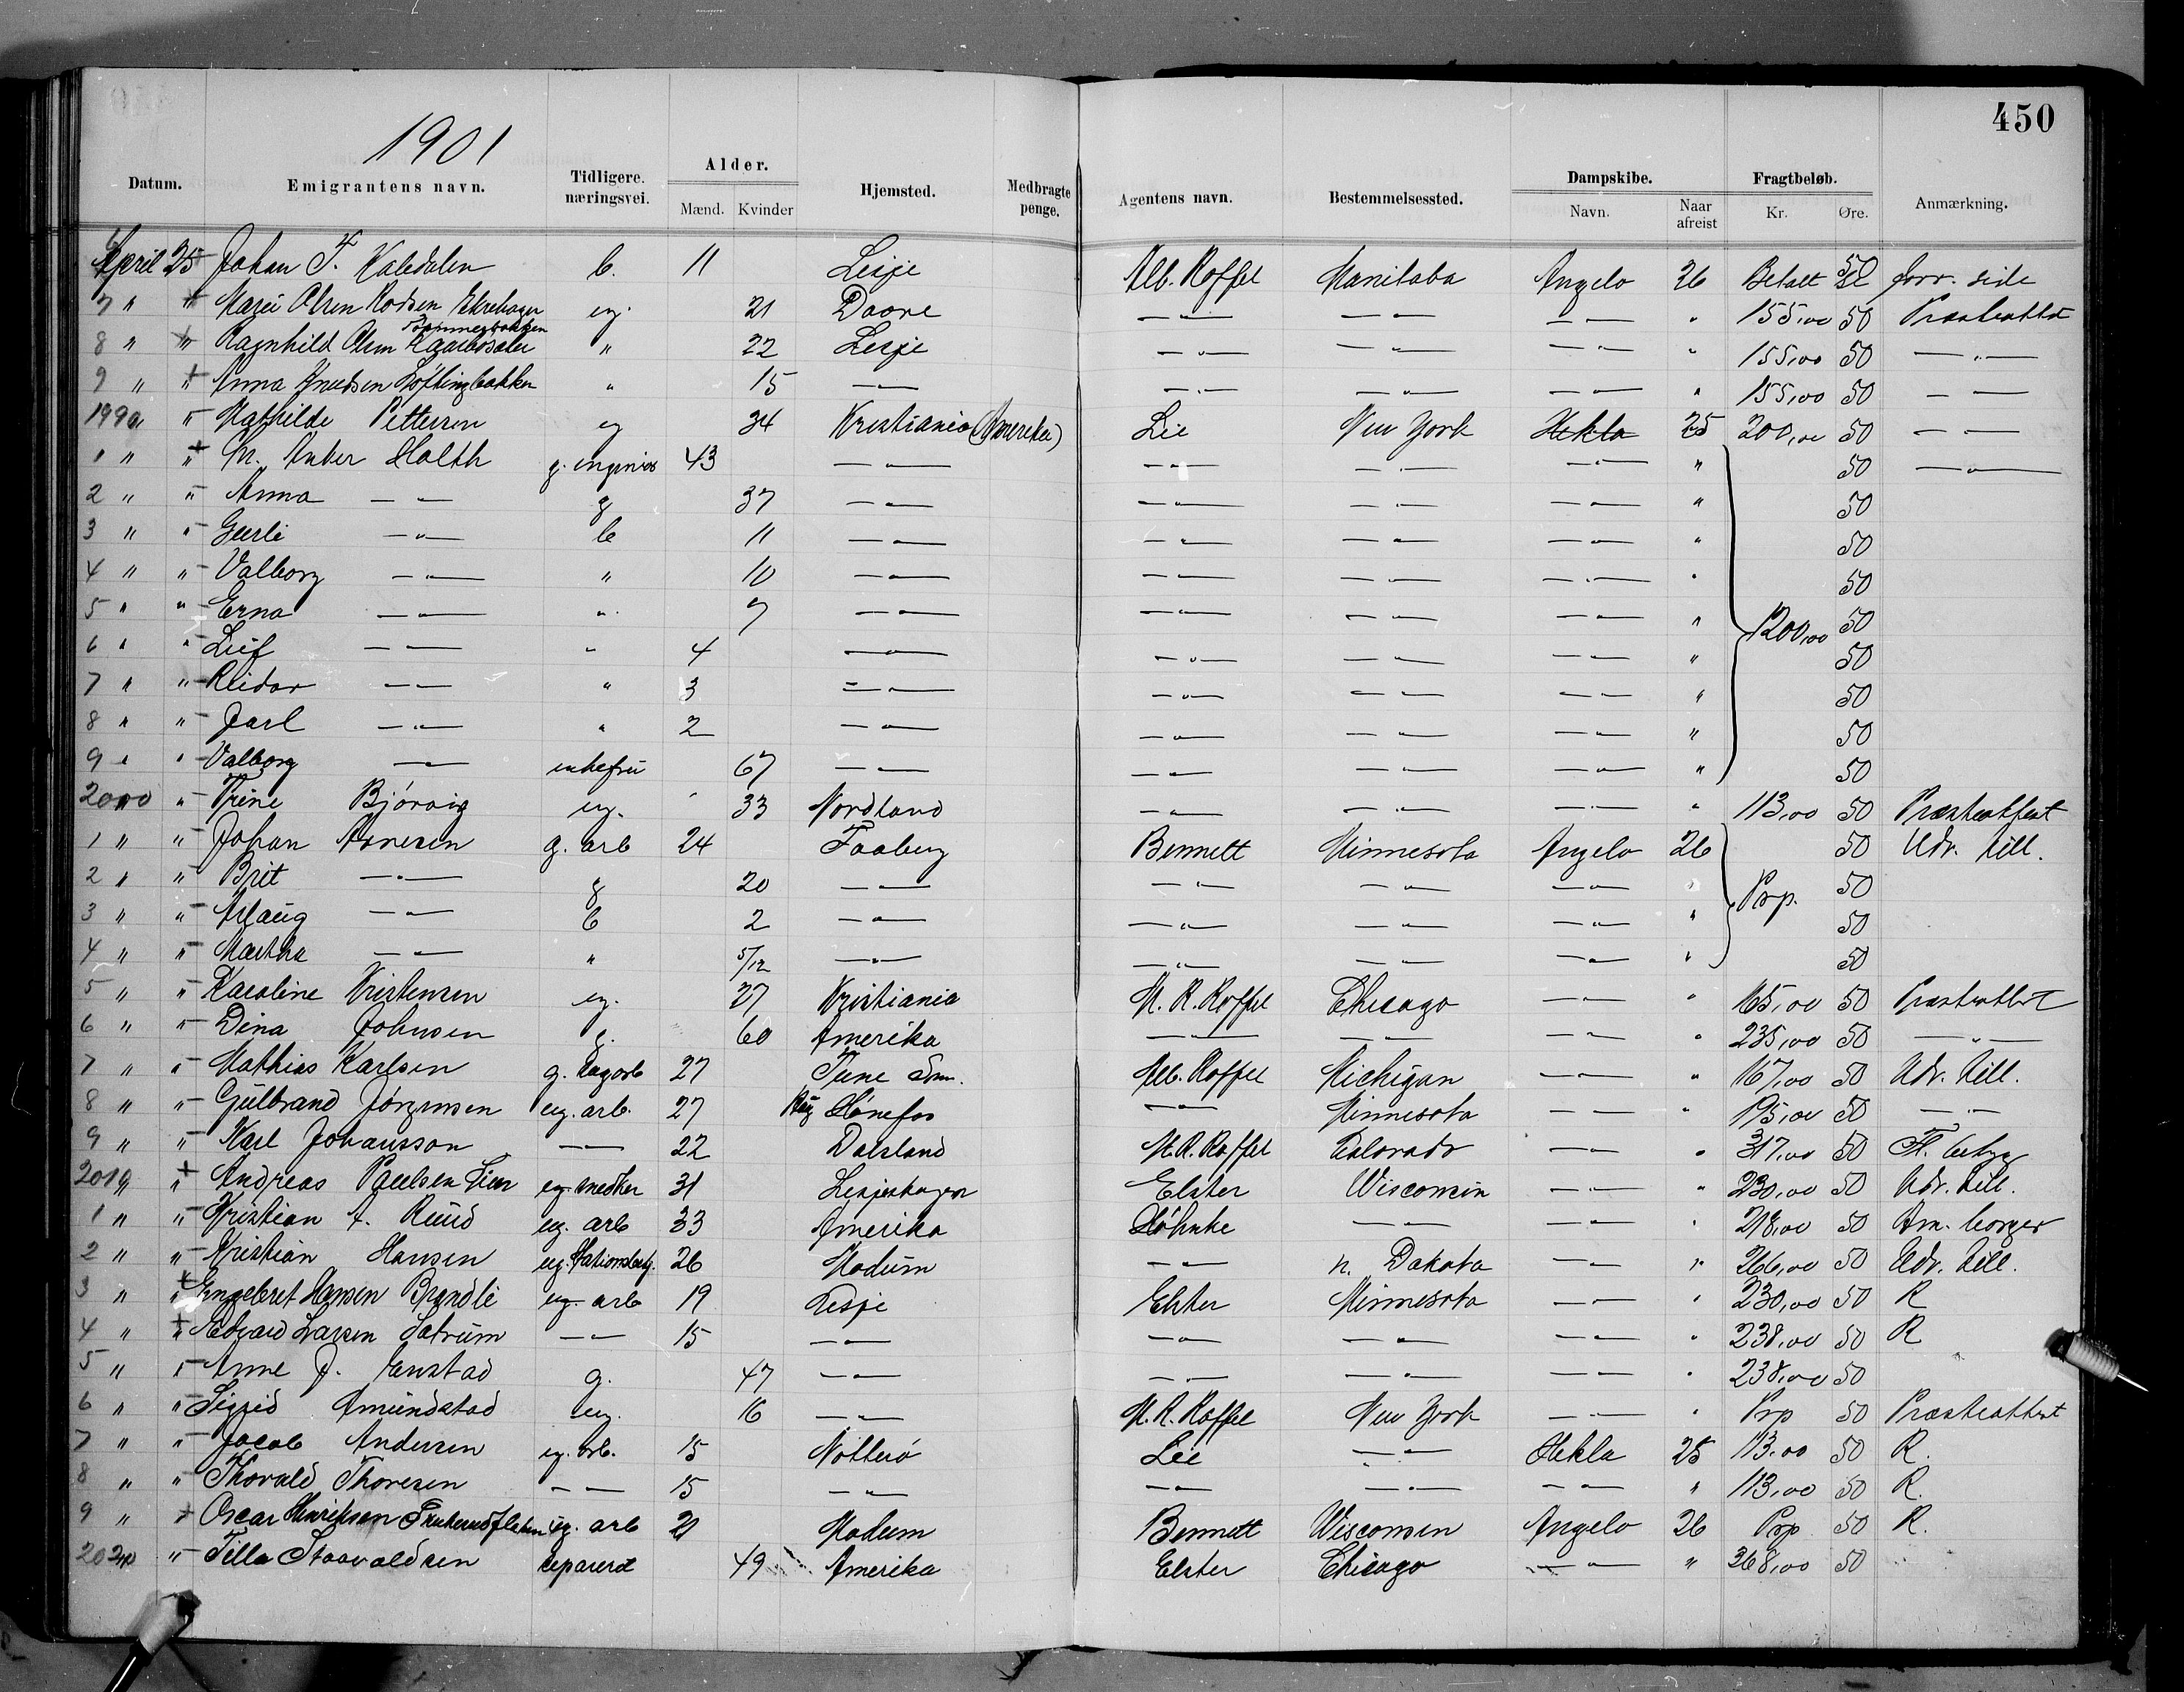 450
1901
Datum. Emigrantens navn. Tidligere. næringsvei. Alder. Mænd. Kvinder Hjemsted. Medbragte penge. Agentens navn. Bestemmelsessted. Dampskibe. Navn. Naar afreist Fragtbeløb. Kr. Øre. Anmærkning.
6 April 25 Johan T. b. 11 Lesje Alb. Roffel Manitoba Angelo 26 Betalt 50 forr. side
7 " " Mari Olsen eg. 21 Doore —"— —"— —"— " 155,00 50 Præsteattest
8 " " Ragnhild Olsen " 22 Lesje —"— —"— —"— " 155,00 50 —"—
9 " " Anna Knudsen Løftingbakken " 15 —"— —"— —"— —"— " 155,00 50 —"—
1990 " Mathilde Pettersen eg 34 Kristiania (Amerika) Lie New York Hekla 25 200,00 50 —"—
1 " " M. Anker Holth g. ingeniør 43 —"— —"— —"— —"— " 50 —"—
2 " " Anna —"— g 37 —"— —"— —"— —"— " 50
3 " " Gurli —"— b 11 —"— —"— —"— —"— " 50
4 " " Valborg —"— " 10 —"— —"— —"— —"— " 50
5 " " Erna —"— " 7 —"— —"— —"— —"— " 1200,00 50
6 " " Leif —"— " 4 —"— —"— —"— —"— " 50
7 " " Reidar —"— " 3 —"— —"— —"— —"— " 50
8 " " Jarl —"— " 2 —"— —"— —"— —"— " 50
9 " " Valborg —"— enkefru 67 —"— —"— —"— —"— " 50
2000 " Trine Bjørvig eg. 33 Nordland —"— —"— —"— " 113,00 50 Præsteattest
1 " " Johan Arnesen g. arb 24 Faaberg Bennett Minnesota Angelo 26 50 Udv. till.
2 " " Brit —"— g 20 —"— —"— —"— —"— " Prp. 50
3 " " Aslaug —"— b 2 —"— —"— —"— —"— " 50
4 " " Martha —"— " 5/12 —"— —"— —"— —"— " 50
5 " " Karoline Kristensen eg. 27 Kristiania M. R. Roffel Chicago —"— " 165,00 50 Præsteattest
6 " " Dina Johnsen g. 60 Amerika —"— —"— —"— " 235,00 50 —"—
7 " " Mathias Karlsen g. 27 Tune Sm. Alb. Roffel Michigan —"— " 167,00 50 Udv. till.
8 " " Gulbrand Jørgensen eg. arb. 27 Hønefos —"— Minnesota —"— " 195,00 50 —"—
9 " " Karl Johansson —"— 22 Dalsland M. R. Roffel Colorado —"— " 317,00 50
2010 " Andreas Paulsen Lien eg. snedker 31 Lesjeskogen Elster Wisconsin —"— " 230,00 50 Udv. till.
1 " " Kristian A. Ruud eg. arb 33 Amerika Høhnke —"— —"— " 218,00 50 Am. borger
2 " " Kristian Hansen eg. 26 Modum —"— n. Dakota —"— " 266,00 50 Udv. till.
3 " " Engebret Hansen Brandli eg. arb 19 Lesje Elster Minnesota —"— " 230,00 50 R
4 " " Edvard Larsen —"— 15 —"— —"— —"— —"— " 238,00 50 R
5 " " Anne J. Enstad g. 47 —"— —"— —"— —"— " 238,00 50
6 " " Sigrid Amundstad eg. 16 —"— M. R. Roffel New York —"— " Prp 50 Præsteattest
7 " " Jacob Andersen eg. arb. 15 Nøtterø Lie —"— Hekla 25 113.00 50 R.
8 " " Thorvald Thoresen —"— 15 —"— —"— —"— —"— " 113,00 50 R.
9 " Oscar Henriksen eg. arb 21 Modum Bennett Wisconsin Angelo 26 Prp 50 R.
2020 " Tilla Staavaldsen separert 49 Amerika Elster Chicago —"— " 368,00 50